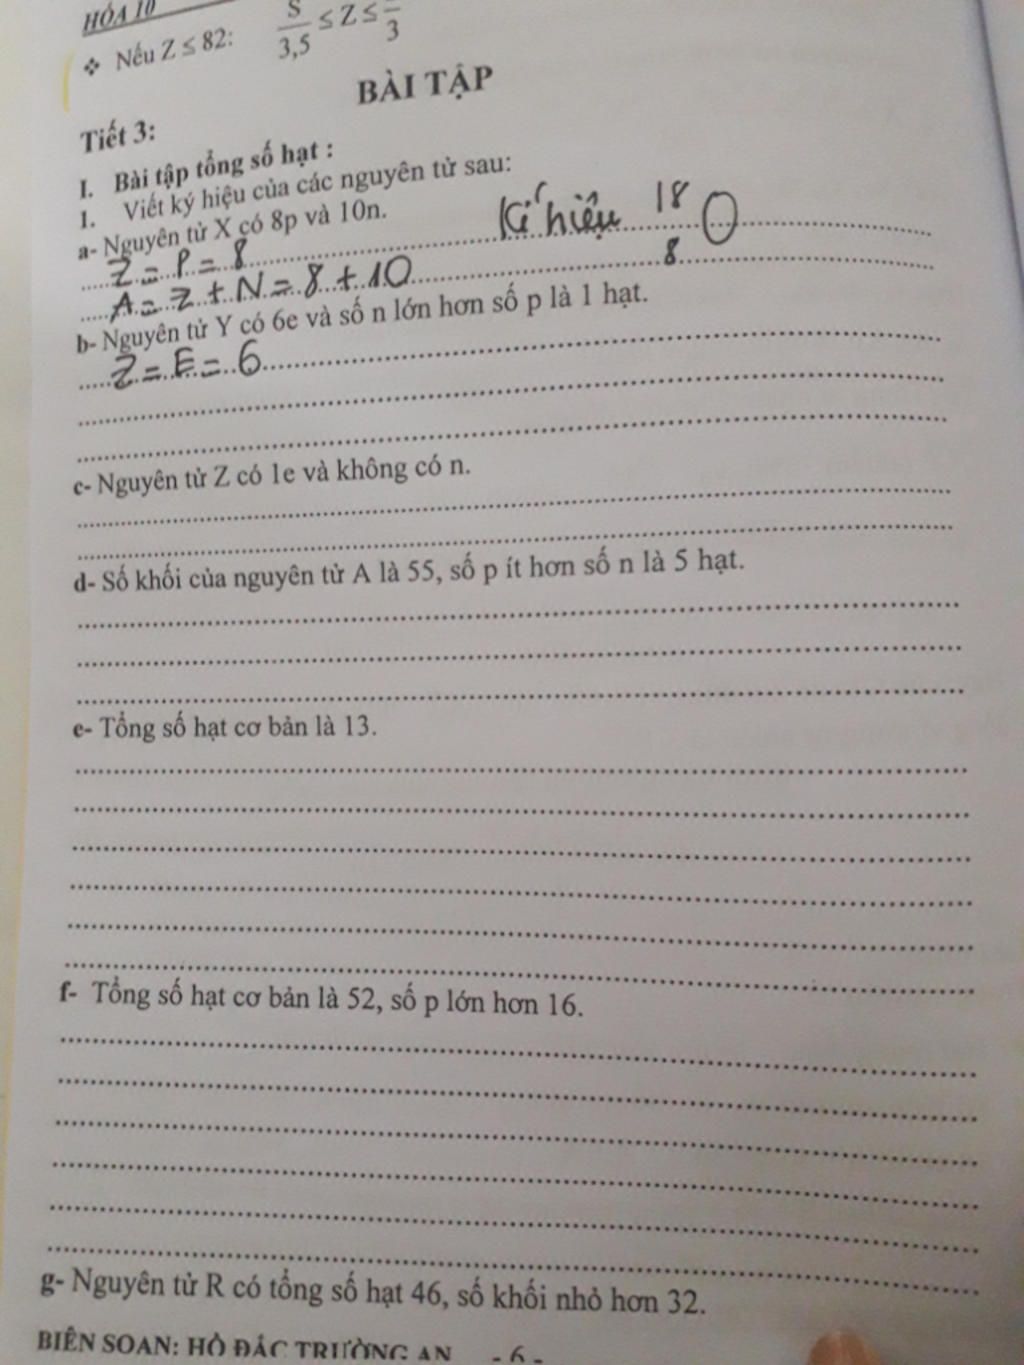 HÓA 10
❖ Nếu Z ≤ 82: S/3,5 ≤ Z ≤ /3
BÀI TẬP
Tiết 3:
I. Bài tập tổng số hạt :
1. Viết ký hiệu của các nguyên tử sau:
a- Nguyên tử X có 8p và 10n.
Z = P = 8 Kí hiệu 18 8 O
A = Z + N = 8 + 10
b- Nguyên tử Y có 6e và số n lớn hơn số p là 1 hạt.
Z = E = 6
c- Nguyên tử Z có 1e và không có n.
d- Số khối của nguyên tử A là 55, số p ít hơn số n là 5 hạt.
e- Tổng số hạt cơ bản là 13.
f- Tổng số hạt cơ bản là 52, số p lớn hơn 16.
g- Nguyên tử R có tổng số hạt 46, số khối nhỏ hơn 32.
BIÊN SOẠN: HỒ ĐẮC TRƯỜNG AN - 6 -